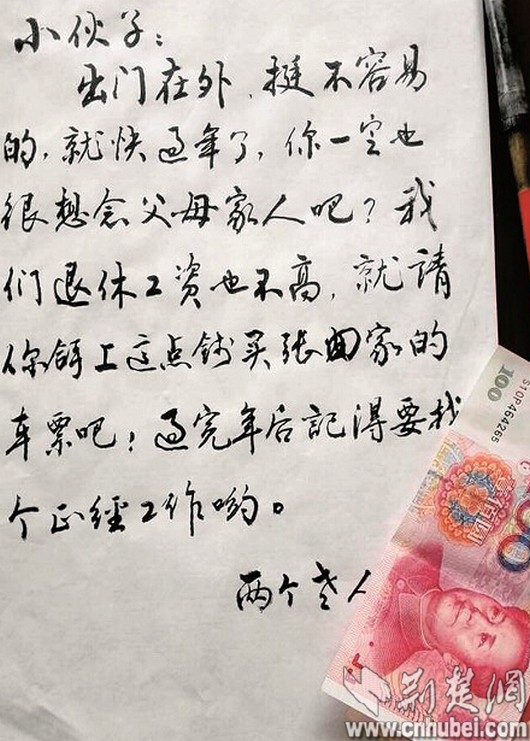 小伙子:
出门在外,挺不容易
的,就快過年了,你一定也
很想念父母家人吧?我
们退休工资也不高,就請
你拿上这点钱买张回家的
车票吧!過完年后記得要找
个正經工作哟。
两个老人
100
S10P464265
荆楚網
www.cnhubei.com